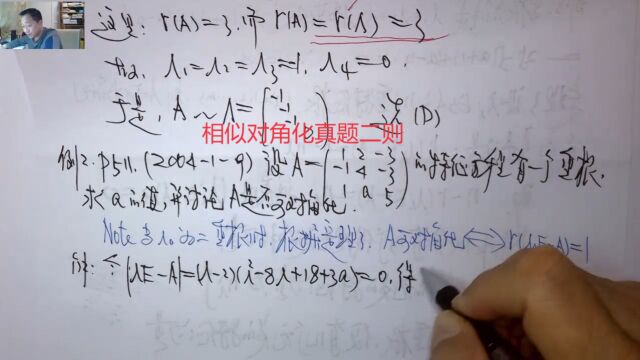 这里: r(A)=3, 而 r(A)=r(Λ)=3
故, λ₁=λ₂=λ₃=-1, λ₄=0.
于是, A~Λ=(-1 -1 -1 0) 选(D)
相似对角化真题二则
例2. P511. (2004-1-9) 设A=(1 2 -3 -1 4 -3 1 a 5)的特征方程有一个二重根,
求a的值,并讨论A是否可对角化.
Note 当λ₀为二重根时, 根据定理3, A可对角化⟺r(λ₀E-A)=1
解: 令|λE-A|=(λ-2)(λ²-8λ+18+3a)=0. 得